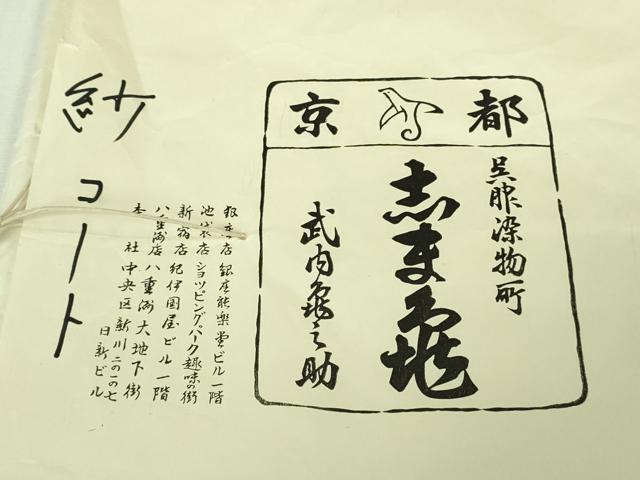 京都
呉服染物所
志ま亀
武内亀之助
銀座店 銀座能楽堂ビル一階
池袋店 ショッピングパーク趣味の街
新宿店 紀伊國屋ビル一階
八重洲店 八重洲大地下街
本社 中央区新川二の一の七
日新ビル
紗コート